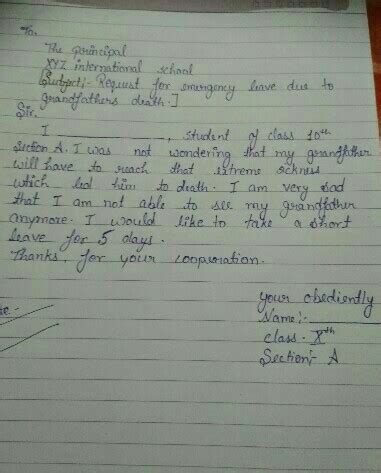 To,
The principal
XYZ international school
[Subject:- Request for emergency leave due to
grandfathers death.]
Sir,
I __________, student of class 10th
Section A. I was not wondering that my grandfather
will have to reach that extreme sickness
which led him to death. I am very sad
that I am not able to see my grandfather
anymore. I would like to take a short
leave for 5 days.
Thanks, for your cooperation.
your obediently
Name:- __________
class - Xth
Section:- A